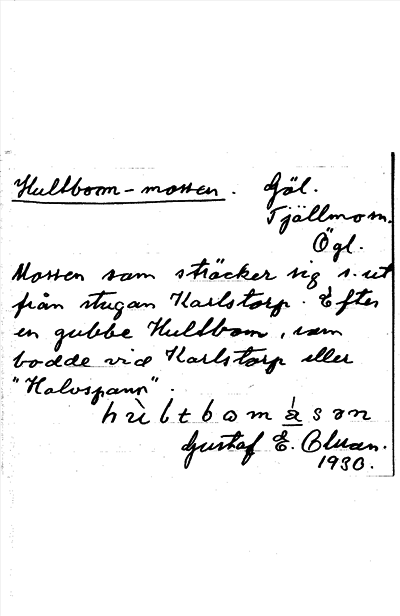 Hultbom-mossen. Göl.
Tjällmo sn.
Ögl.
Mossen som sträcker sig s. ut
från stugan Karlstorp. Efter
en gubbe Hultbom, som
bodde vid Karlstorp eller
"Halvspann".
Gustaf E.
1930.